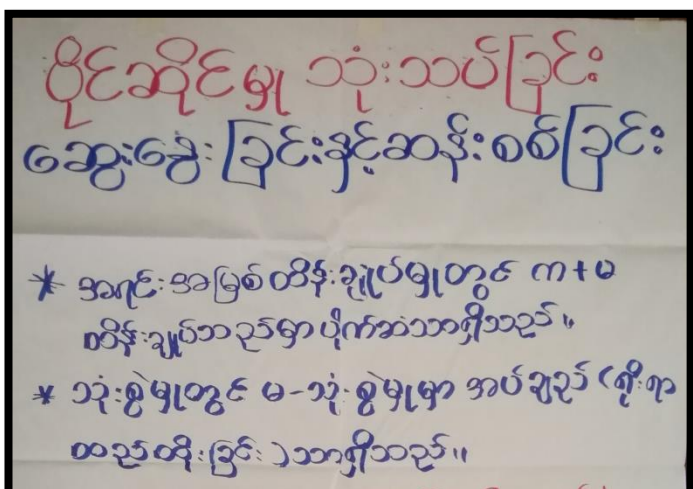 ပိုင်ဆိုင်မှု သုံးသပ်ခြင်း
ဆွေးနွေးခြင်းနှင့်ဆန်းစစ်ခြင်း
* အရင်းအမြစ်ထိန်းချုပ်မှုတွင် က+မ
ထိန်းချုပ်သည်မှာ ပိုက်ဆံသာရှိသည်။
* သုံးစွဲမှုတွင် မ-သုံးစွဲမှုမှာ အပ်ချည် (ရိုးရာ
ထည်ထိုးခြင်း)သာရှိသည်။